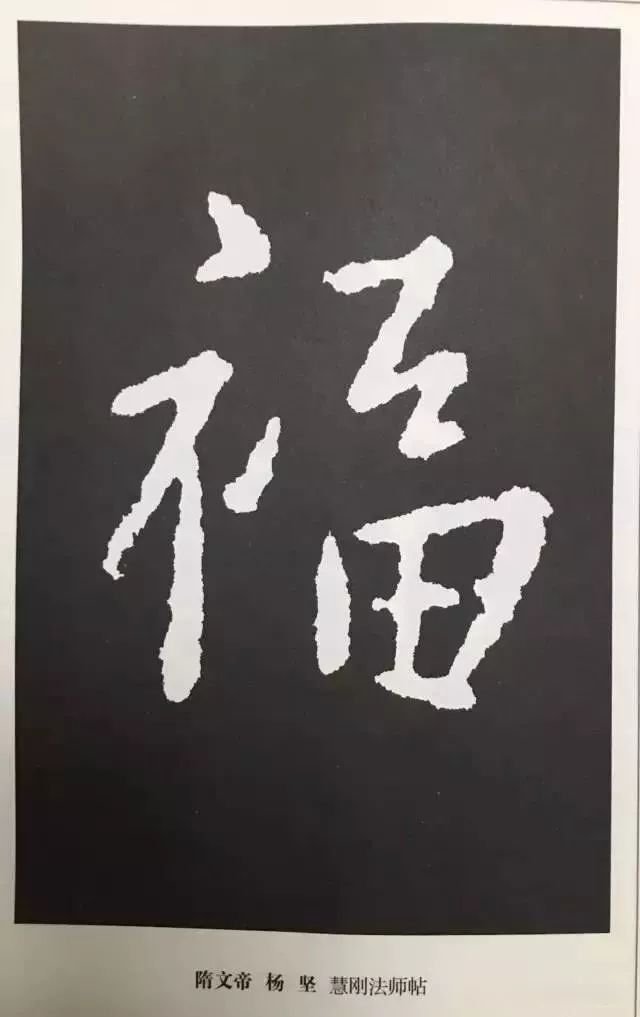 福
隋文帝 杨 坚 慧刚法师帖